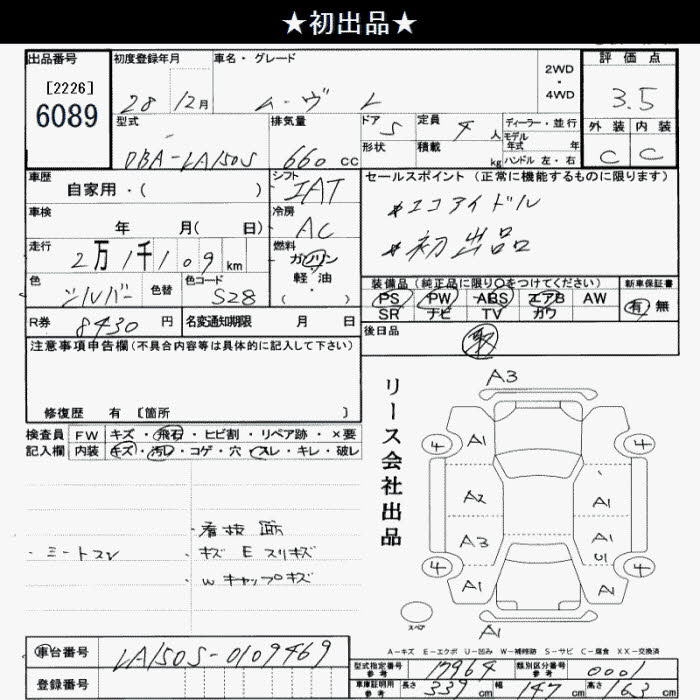 ★初出品★
出品番号
[2226]
6089
初度登録年月
28 12月
車名・グレード
ムーヴ L
2WD
・
4WD
評価点
3.5
外装 内装
C C
型式
DBA-LA150S
排気量
660 cc
ドア 5
形状
定員 4 人
積載 kg
ディーラー・並行
モデル
年式 年
ハンドル 左・右
車歴
自家用・( )
シフト
IAT
車検
年 月( 日)
冷房
AC
走行
2万1千109km
燃料
ガソリン
軽・油
( ・ )
色
シルバー
色替
色コード
S28
R券 8430 円
名変通知期限 月 日
セールスポイント(正常に機能するものに限ります)
*エコアイドル
*初出品
装備品(純正品に限り○をつけてください)
PS PW ABS エアB AW
SR ナビ TV カワ
新車保証書
有 無
後日品
取
注意事項申告欄(不具合内容等は具体的に記入して下さい)
修復歴 有 [箇所 ]
検査員 FW キズ・飛石・ヒビ割・リペア跡・×要
記入欄 内装 キズ・汚れ・コゲ・穴・スレ・キレ・破レ
・看板跡
・シートスレ
・キズ E スリキズ
・Wキャップキズ
リース会社出品
A3
4 A1 4
A2 A1
A3 A1
U1
4 A1 A 4
スペア
A1
A-キズ E-エクボ U-凹み W-補修跡 S-サビ C-腐食 XX-交換済
車台番号 LA150S-0109469
登録番号
型式指定番号
参考
17964
類別区分番号
参考
0001
車庫証明用
参考
長さ 339 cm 幅 147 cm 高さ 163 cm